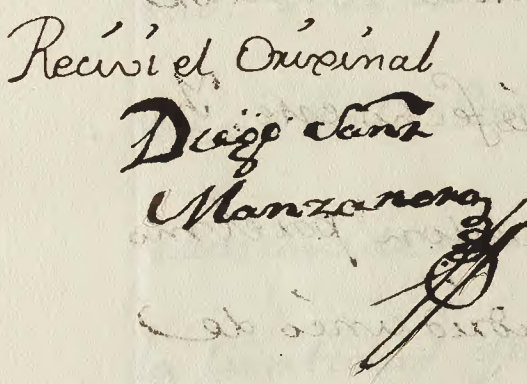 Recivi el Orixinal
Diego Sanz
Manzanera